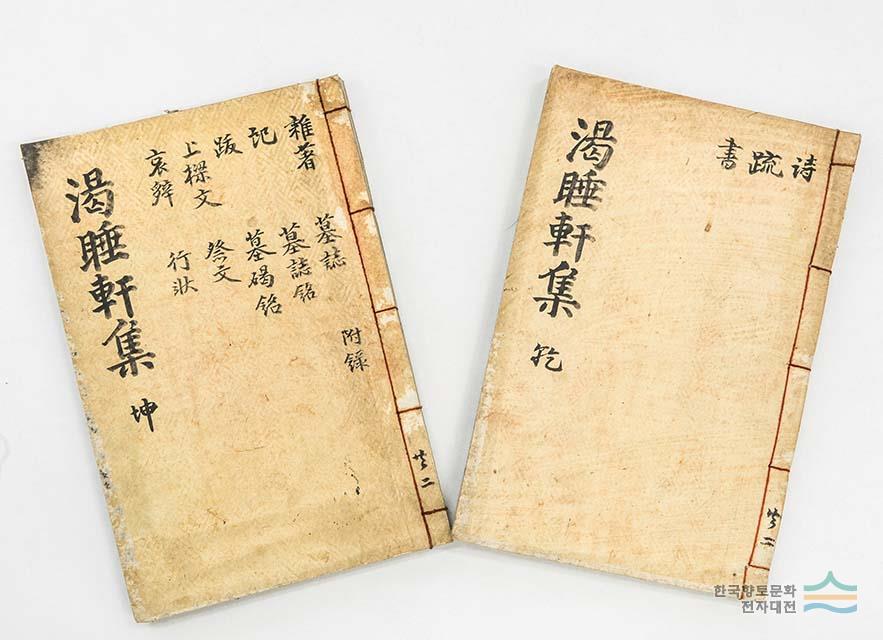 詩
疏
書
渴睡軒集 乾
共二
雜著
記
跋
上樑文
哀辭
墓誌
墓誌銘
墓碣銘
祭文
行狀
附錄
渴睡軒集 坤
共二
한국향토문화
전자대전